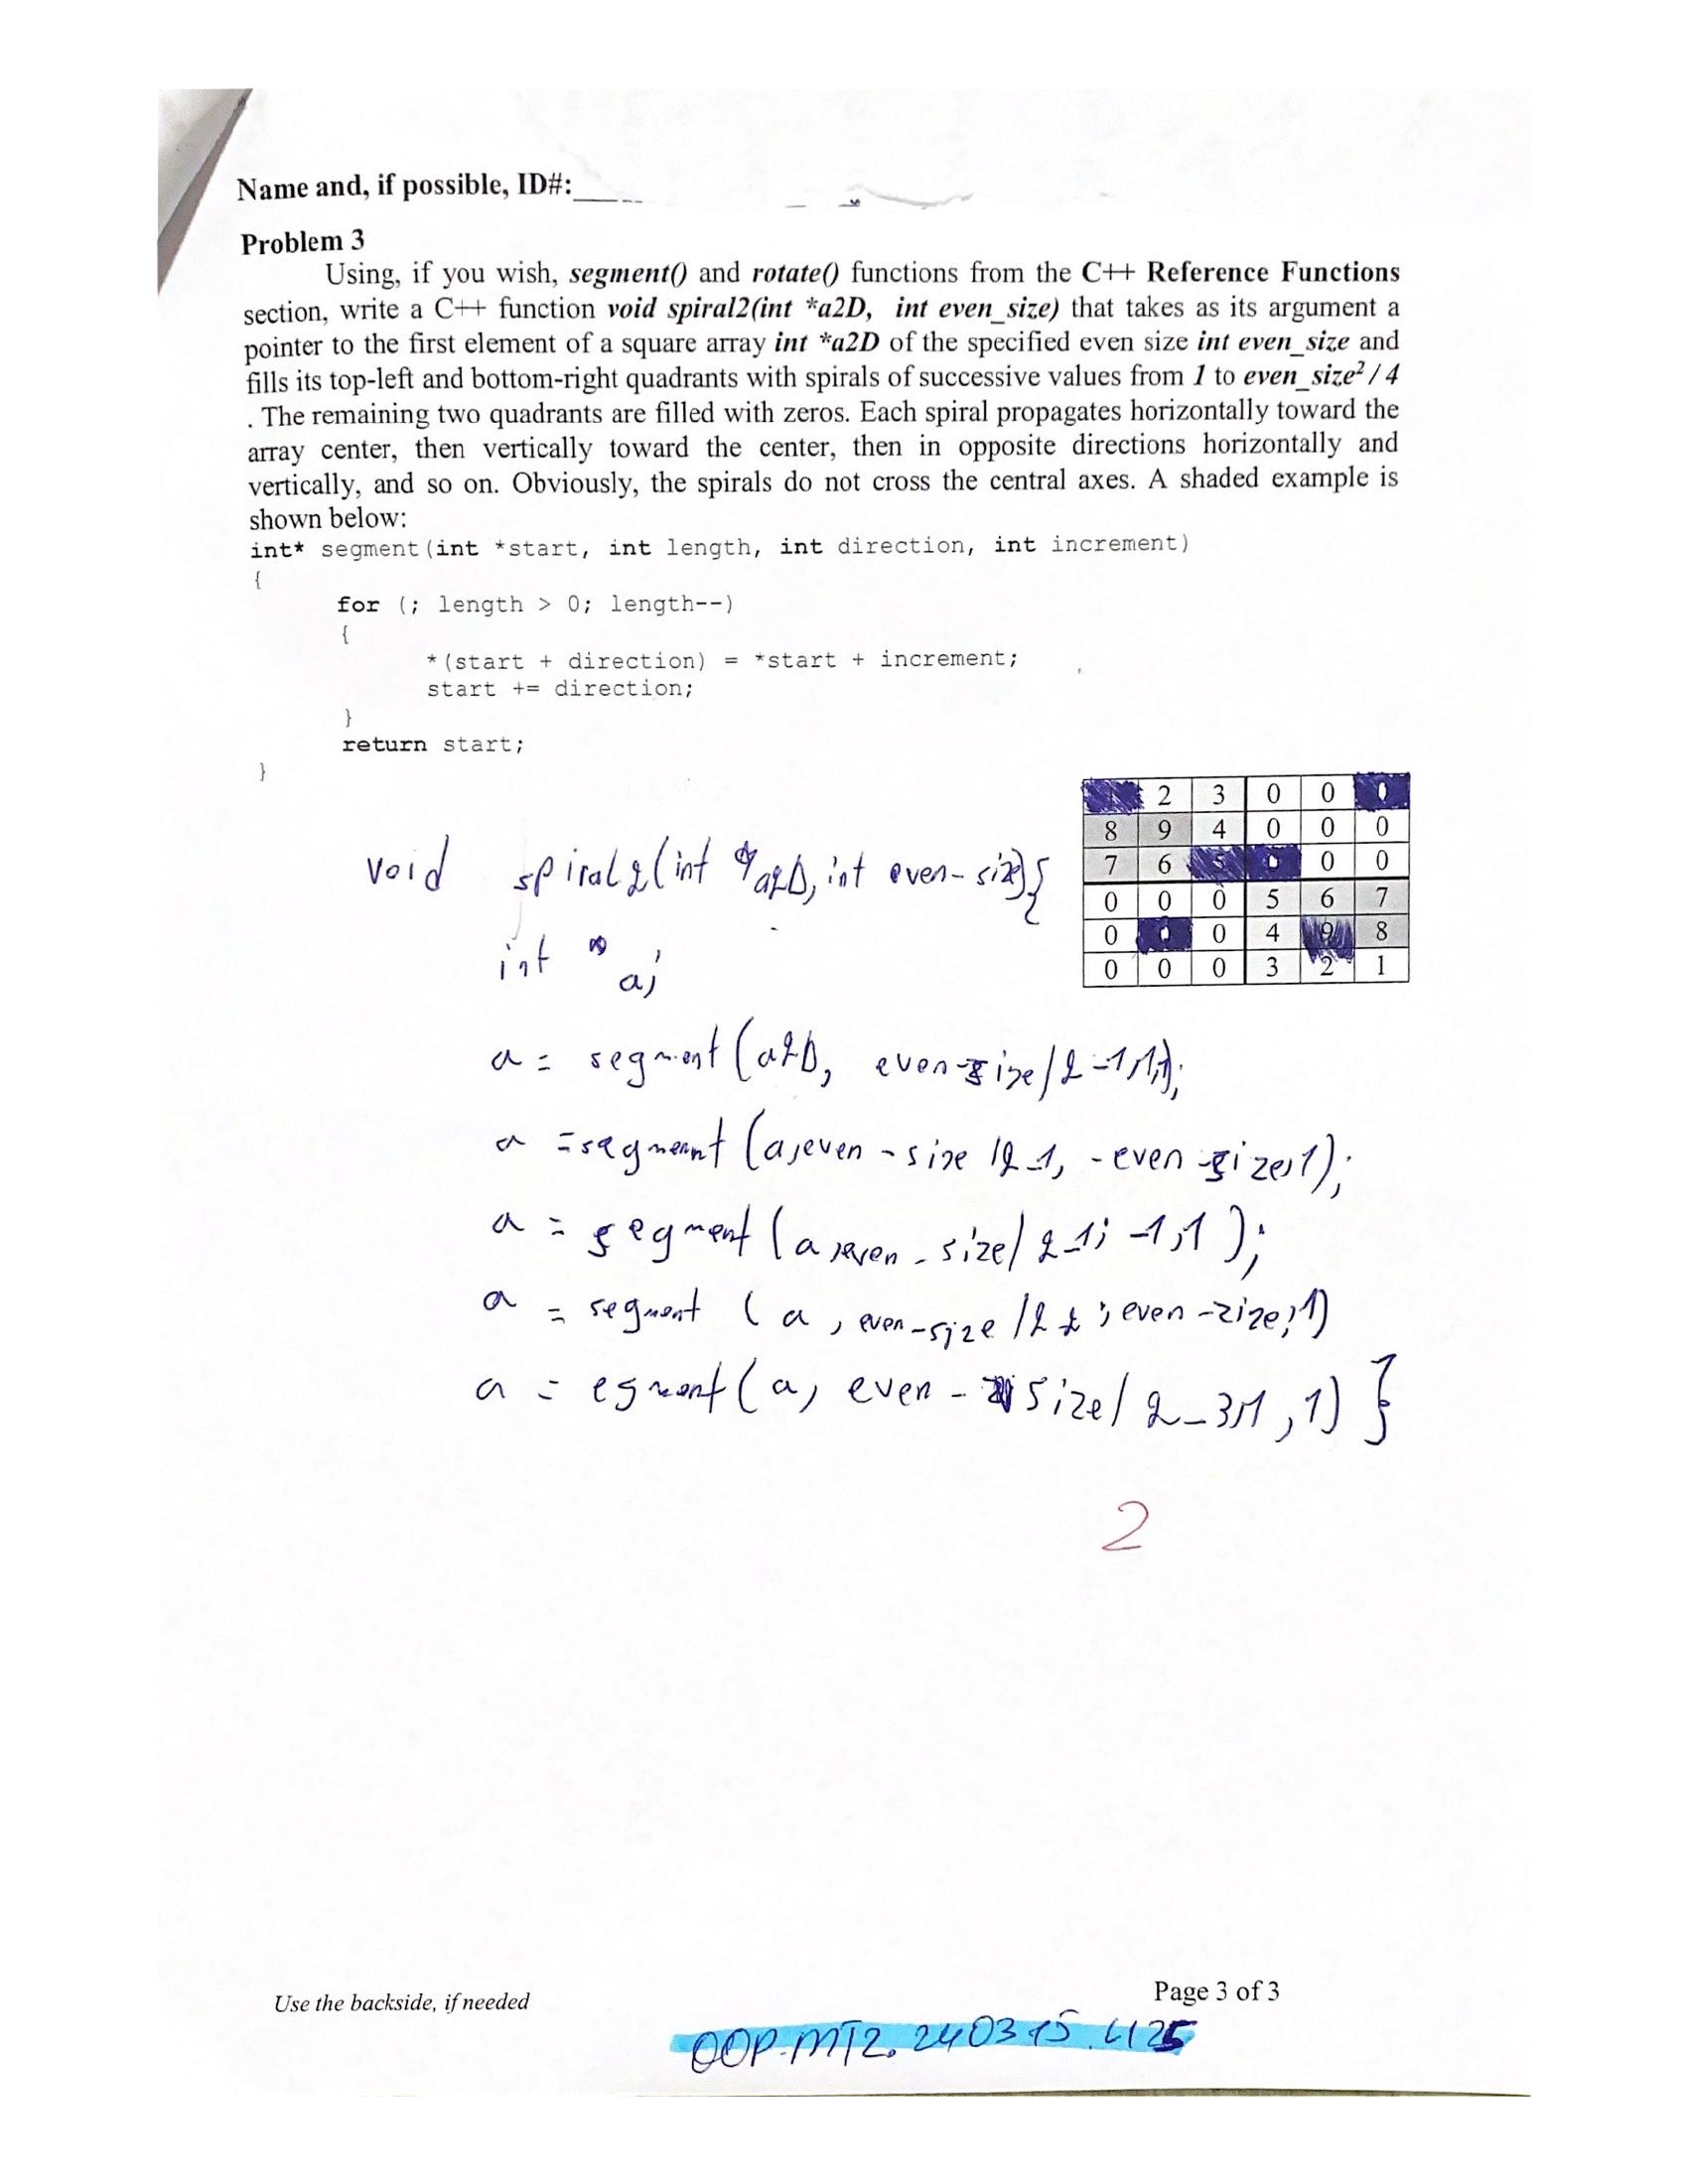 Name and, if possible, ID#:
Problem 3
Using, if you wish, segment() and rotate() functions from the C++ Reference Functions
section, write a C++ function void spiral2(int *a2D, int even_size) that takes as its argument a
pointer to the first element of a square array int *a2D of the specified even size int even_size and
fills its top-left and bottom-right quadrants with spirals of successive values from 1 to even_size²/ 4
. The remaining two quadrants are filled with zeros. Each spiral propagates horizontally toward the
array center, then vertically toward the center, then in opposite directions horizontally and
vertically, and so on. Obviously, the spirals do not cross the central axes. A shaded example is
shown below:
int* segment(int *start, int length, int direction, int increment)
{
for (; length > 0; length--)
{
*(start + direction) = *start + increment;
start += direction;
}
return start;
}
1 2 3 0 0 0
8 9 4 0 0 0
7 6 5 0 0 0
0 0 0 5 6 7
0 0 0 4 9 8
0 0 0 3 2 1
void spiral2(int *a2D, int even-size){
int * a;
a = segment(a2D, even-size/2-1,1,1);
a =segmennt(a,even-size/2-1, -even-size,1);
a = segment(a,even-size/2-1; -1,1);
a = segment (a, even-size/2 ; even-size;1)
a = egment(a, even-size/2-3,1,1) }
2
Use the backside, if needed
Page 3 of 3
OOP.MT2. 240315. 4125